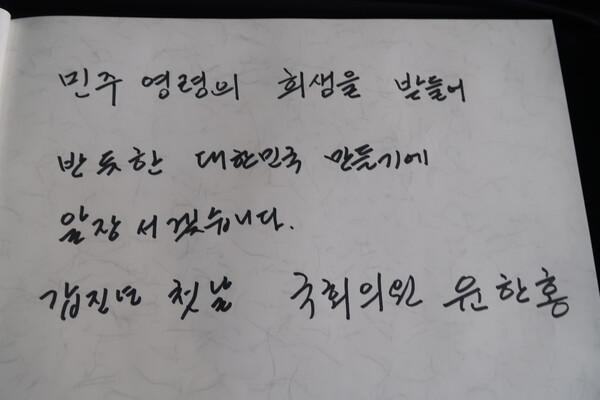 민주 영령의 희생을 받들어
반듯한 대한민국 만들기에
앞장 서겠습니다.
갑진년 첫날 국회의원 윤한홍